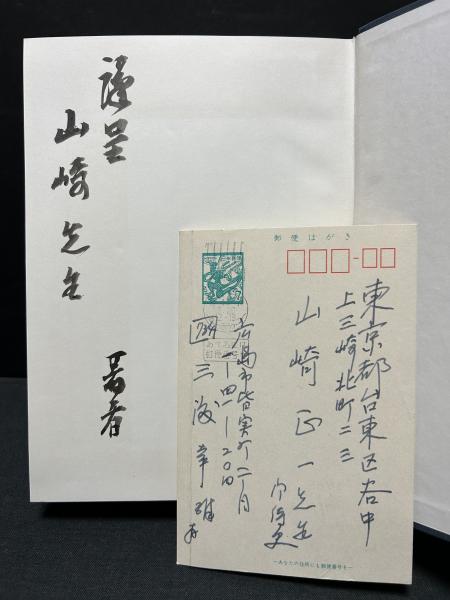 謹呈
山崎先生
著者
郵便はがき
東京都台東区谷中
上三崎北町二三
山崎正一先生
広島市皆実町二丁目
一四一一二〇四
三海幸雄
ーあなたの住所にも郵便番号をー